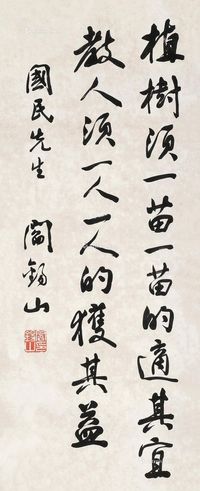 植樹須一苗一苗的適其宜
教人須一人一人的獲其益
國民先生
閻錫山